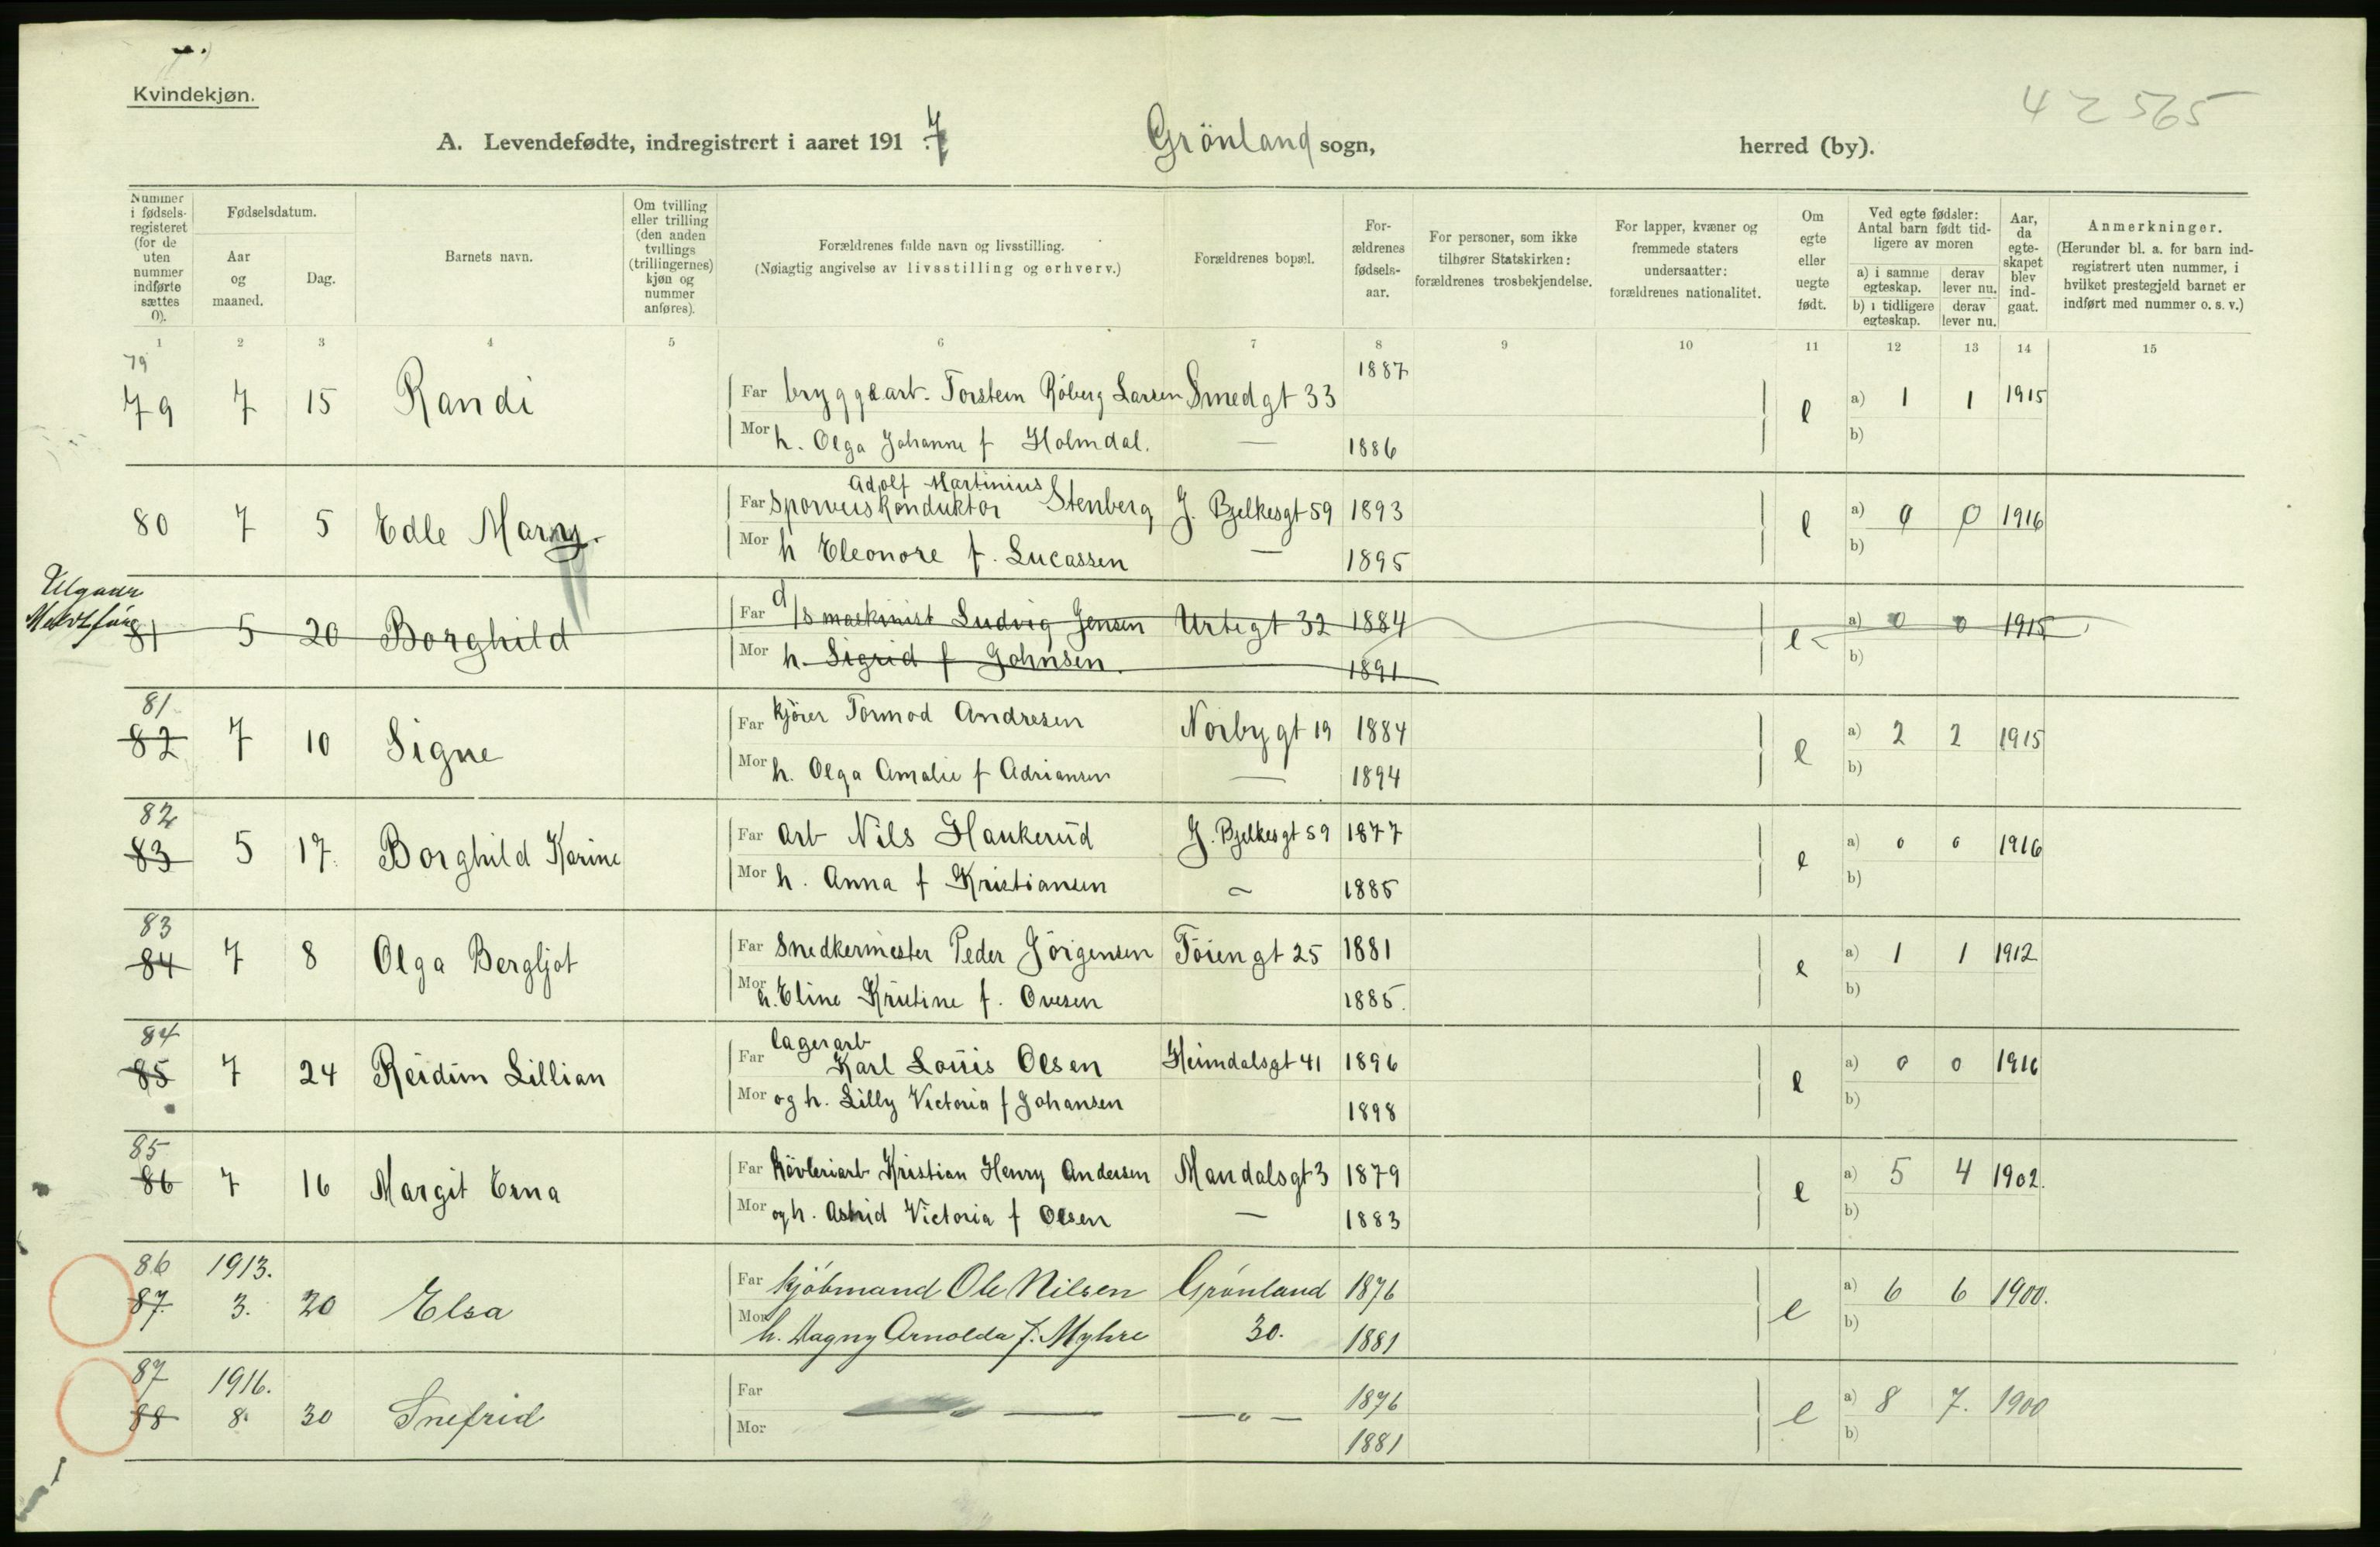 Kvindekjøn.
42565
A. Levendefødte, indregistrert i aaret 1917 Grönland sogn, herred (by).
Nummer i fødselsregisteret (for de uten nummer indførte sættes 0).
Fødselsdatum.
Aar og maaned.
Dag.
Barnets navn.
Om tvilling eller trilling (den anden tvillings (trillingernes) kjøn og nummer anføres).
Forældrenes fulde navn og livsstilling.
(Nøiagtig angivelse av livsstilling og erhverv.)
Forældrenes bopæl.
Forældrenes fødselsaar.
For personer, som ikke tilhører Statskirken: forældrenes trosbekjendelse.
For lapper, kvæner og fremmede staters undersaatter: forældrenes nationalitet.
Om egte eller uegte født.
Ved egte fødsler: Antal barn født tidligere av moren
a) i samme egteskap. derav lever nu.
b) i tidligere egteskap. derav lever nu.
Aar, da egteskapet blev indgaat.
Anmerkninger.
(Herunder bl. a. for barn indregistrert uten nummer, i hvilket prestegjeld barnet er indført med nummer o. s. v.)
1 2 3 4 5 6 7 8 9 10 11 12 13 14 15
79 1887
79 7 15 Randi Far bryggearb. Torstein Röberg Larsen Smedgt 33 e a) 1 1 1915
Mor h. Olga Johanne f Holmdal. — 1886 b)
Adolf Martinius
80 7 5 Edle Marny. Far Sporveiskonduktör Stenberg J. Bjelkesgt 59 1893 e a) 0 0 1916
Mor h Eleonore f. Lucassen — 1895 b)
Utgaar
81 5 20 Borghild Far d/s maskinist Ludvig Jensen Urtegt 32 1884 e a) 0 0 1915
Mor h. Sigrid f Johnsen. 1891 b)
81
82 7 10 Signe Far kjörer Tormod Andresen Norbygt 19 1884 e a) 2 2 1915
Mor h. Olga Amalie f Adriansen — 1894 b)
82
83 5 17. Borghild Karine Far Arb Nils Haukerud J. Bjelkesgt 59 1877 e a) 0 0 1916
Mor h. Anna f Kristiansen — 1885 b)
83
84 7 8 Olga Bergljot Far Snedkermester Peder Jörgensen Töiengt 25 1881 e a) 1 1 1912
Mor h. Eline Kristine f. Ovesen 1885. b)
84
85 7 24 Reidun Lillian Far lagerarb Karl Louis Olsen Heimdalsgt 41 1896 e a) 0 0 1916
Mor og h. Lilly Victoria f Johansen 1898 b)
85
86 7 16 Margit Erna Far Hövleriarb Kristian Henry Andersen Mandalsgt 3 1879 e a) 5 4 1902.
Mor og h. Astrid Victoria f Olsen — 1883 b)
86 1913.
87. 3. 20 Elsa Far Kjöbmand Ole Nilsen Grönland 1876 e a) 6 6 1900.
Mor h. Dagny Arnolda f. Myhre 30. 1881 b)
87 1916.
88 8. 30 Snefrid Far — " — — " — 1876 e a) 8 7. 1900
Mor 1881 b)